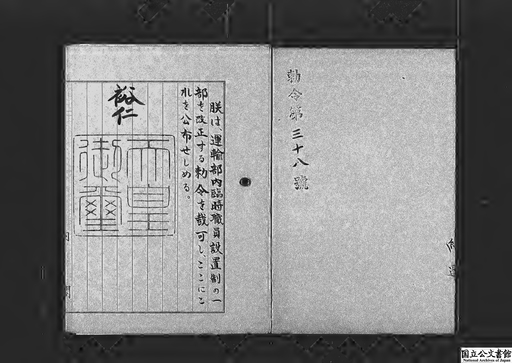 勅令第三十八號
朕は、運輸部內臨時職員設置制の一
部を改正する勅令を裁可し、ここにこ
れを公布せしめる。
裕仁
天皇
御璽
国立公文書館
National Archives of Japan